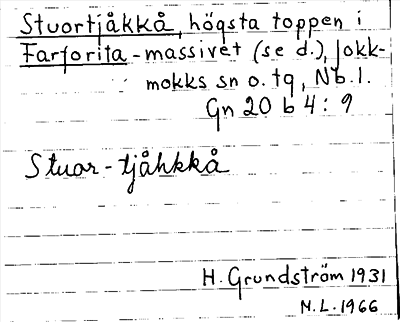 Stuortjåkkå, högsta toppen i
Tarjorita-massivet (se d.), Jokk-
mokks sn o. tq, Nb.l.
Gn 20 b 4:9
Stuor-tjåhkkå
H. Grundström 1931
N.L. 1966